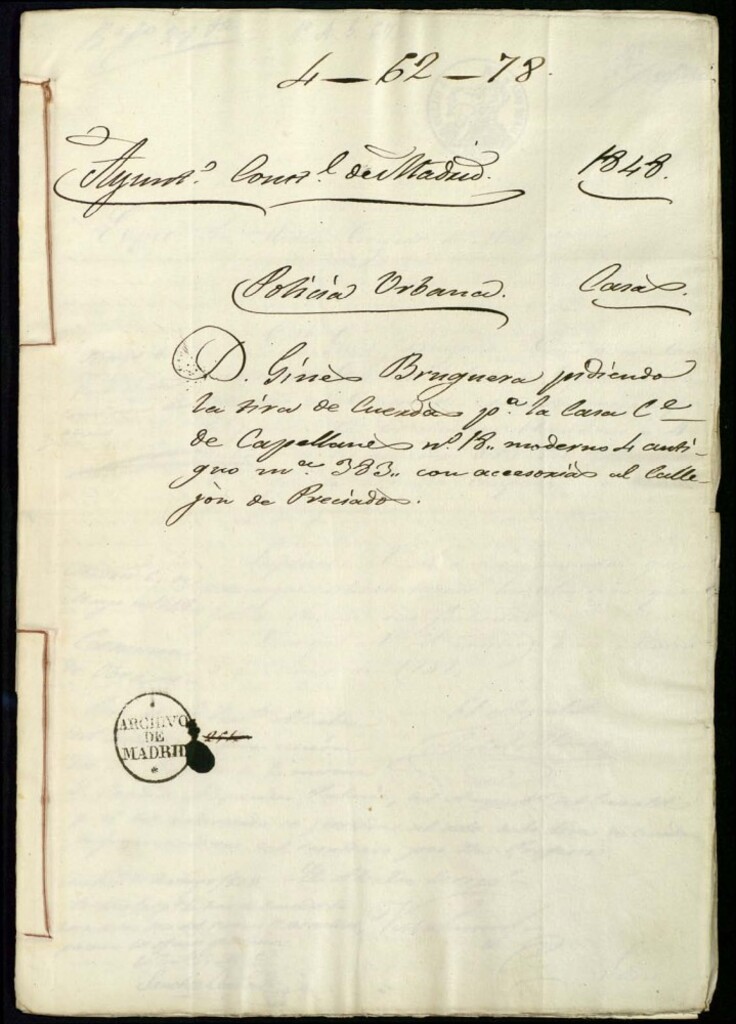 4 - 62 - 78.
Ayunt.º Const.l de Madrid. 1848.
Policia Urbana. Casas.
D. Gines Bruguera pidiendo
la tira de Cuerdas p.ª la Casa C.e
de Capellanes nº 18.. moderno 4 anti-
guo m.na 383.. con accesorias al Calle-
jon de Preciados.
ARCHIVO
DE
MADRID